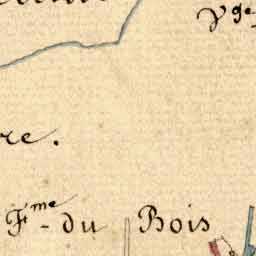 Vge
re.
Fme du Bois